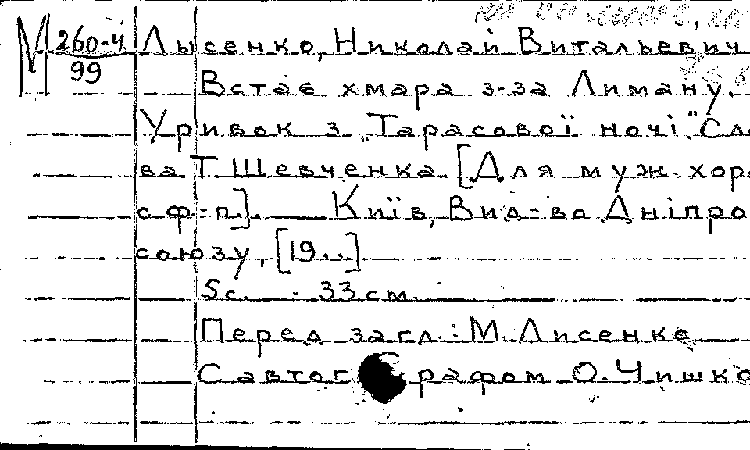 М 260-4
99
Лысенко, Николай Витальевич
Встає хмара з-за Лиману.
Уривок з „Тарасової ночі." Сло
ва Т. Шевченка. [Для муж. хор.
с ф-п.]. — Київ, Вид-во Дніпро
союзу, [19..]
5с. 33см.
Перед загл.: М. Лисенко
С автографом О. Чишко